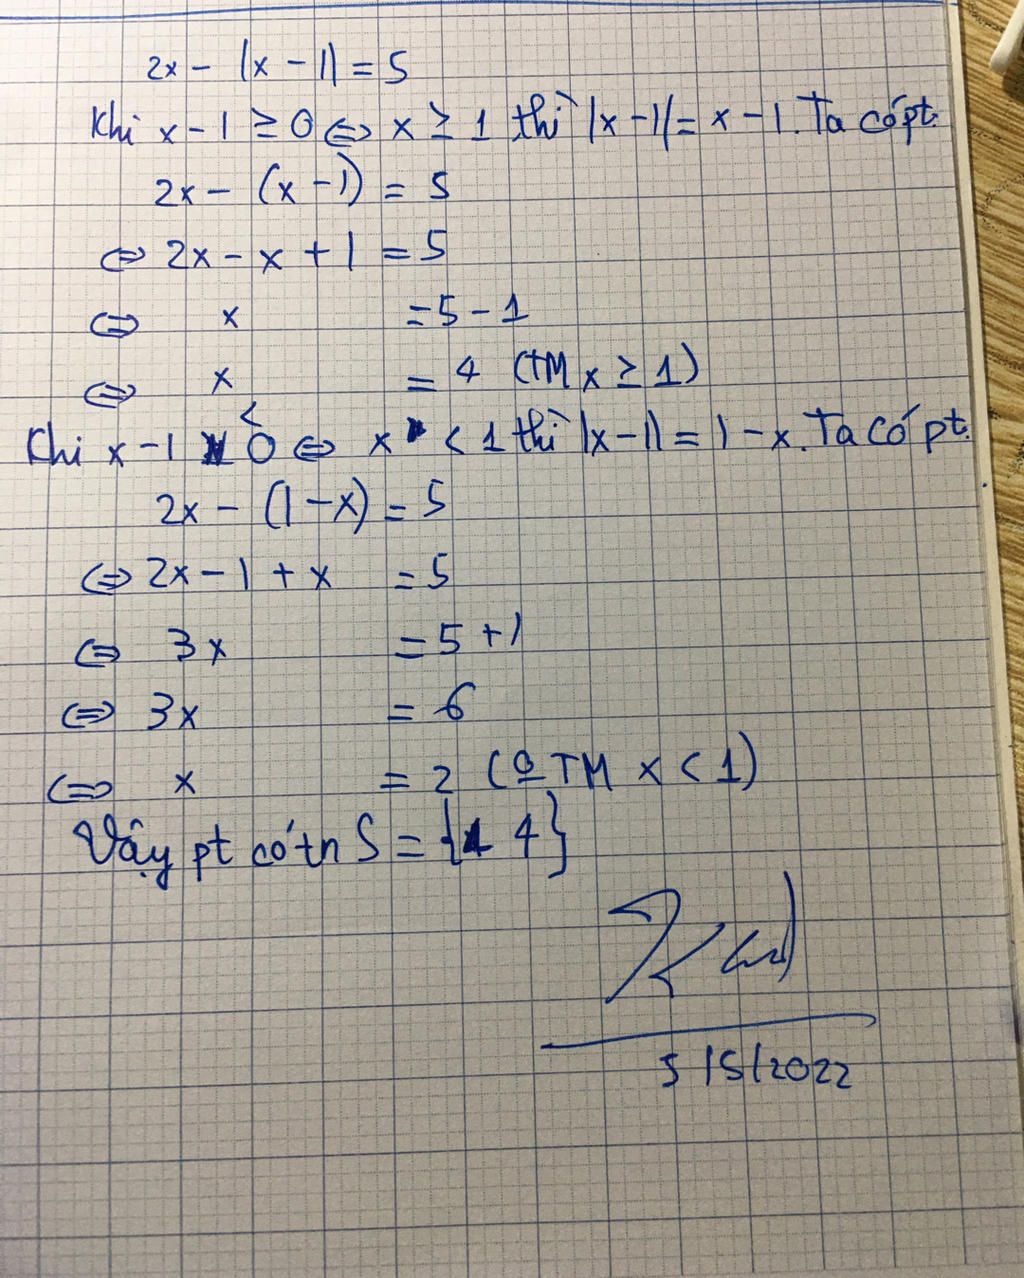 2x - |x - 1| = 5
Khi x - 1 ≥ 0 ⇔ x ≥ 1 thì |x - 1| = x - 1. Ta có pt:
2x - (x - 1) = 5
⇔ 2x - x + 1 = 5
⇔ x = 5 - 1
⇔ x = 4 (TM x ≥ 1)
Khi x - 1 < 0 ⇔ x < 1 thì |x - 1| = 1 - x. Ta có pt:
2x - (1 - x) = 5
⇔ 2x - 1 + x = 5
⇔ 3x = 5 + 1
⇔ 3x = 6
⇔ x = 2 (o TM x < 1)
Vậy pt có tn S = {4}
5/5/2022